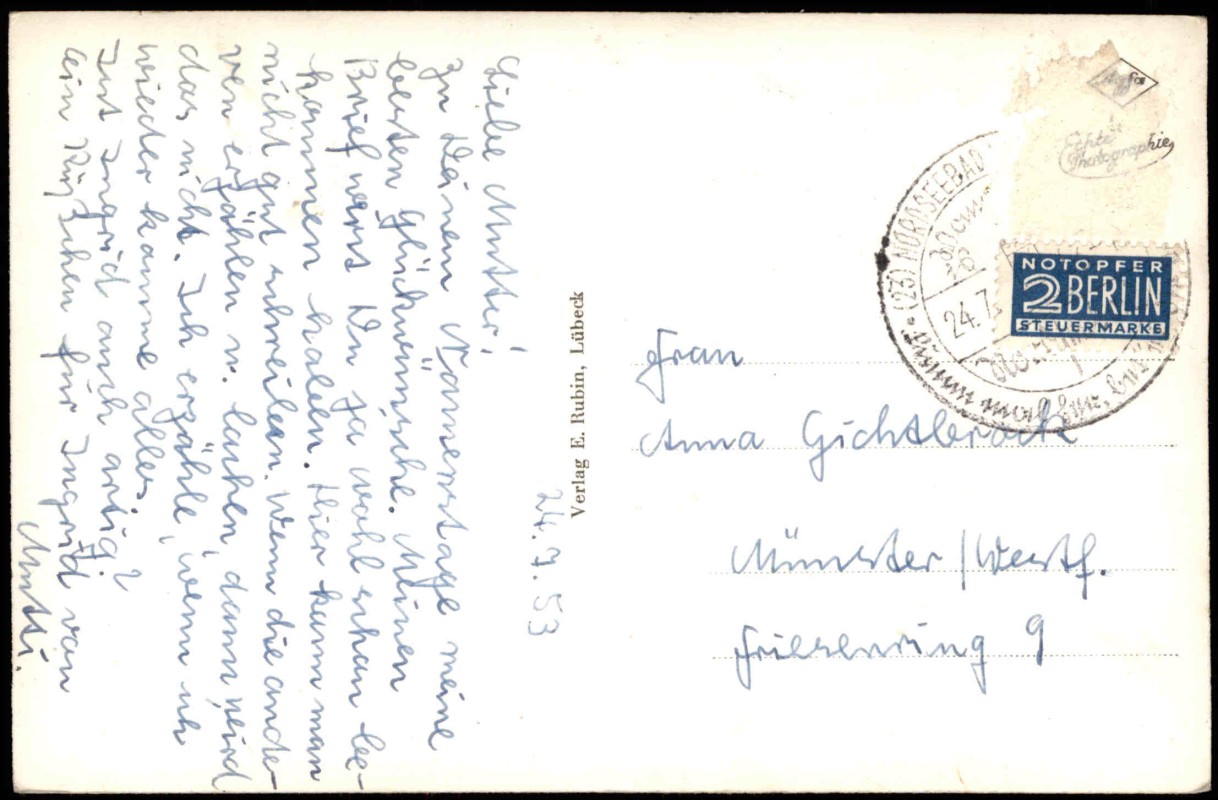 24.7.53
Liebe Mutter!
Zu Deinem Namenstage meine
besten Glückwünsche. Meinen
Brief wirst Du ja wohl schon be-
kommen haben. Hier kann man
nicht gut schreiben. Wenn die ande-
ren erzählen u. lachen, dann wird
das nicht. Ich erzähle, wenn ich
wieder komme alles.
Ist Ingrid auch artig?
Ein Küßchen für Ingrid von
Mutti.
Verlag E. Rubin, Lübeck
Agfa
Echte
Photographie
(23) NORDSEEBAD
24.7.
NOTOPFER
2 BERLIN
STEUERMARKE
Frau
Anna Gichtbrock
Münster/Westf.
Friesenring 9